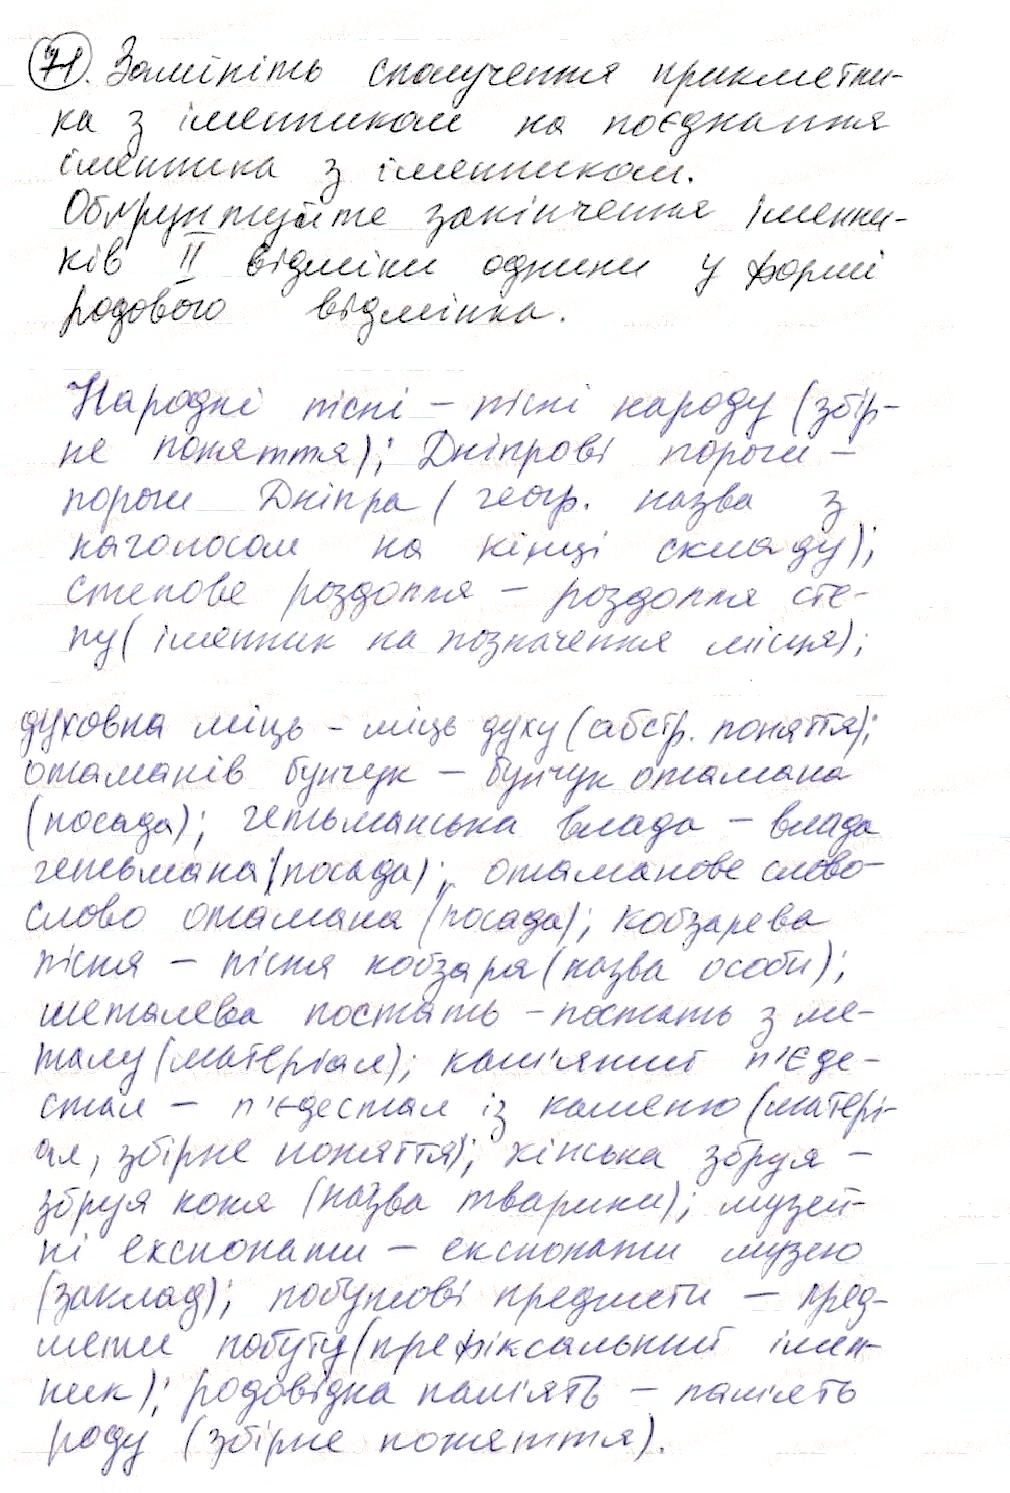 71. Замініть сполучення прикметни-
ка з іменником на поєднання
іменника з іменником.
Обґрунтуйте закінчення іменни-
ків II відміни однини у формі
родового відмінка.
Народні пісні – пісні народу (збір-
не поняття); Дніпрові пороги –
пороги Дніпра (геогр. назва з
наголосом на кінці складу);
степове роздолля – роздолля сте-
пу (іменник на позначення місця);
духовна міць – міць духу (абстр. поняття);
отаманів бунчук – бунчук отамана
(посада); гетьманська влада – влада
гетьмана (посада); отаманове слово–
слово отамана (посада); кобзарева
пісня – пісня кобзаря (назва особи);
металева постать – постать з ме-
талу (матеріал); кам'яний п'єде-
стал – п'єдестал із каменю (матері-
ал, збірне поняття); кінська збруя –
збруя коня (назва тварини); музей-
ні експонати – експонати музею
(заклад); побутові предмети – пред-
мети побуту (префіксальний імен-
ник); родовідна пам'ять – пам'ять
роду (збірне поняття).